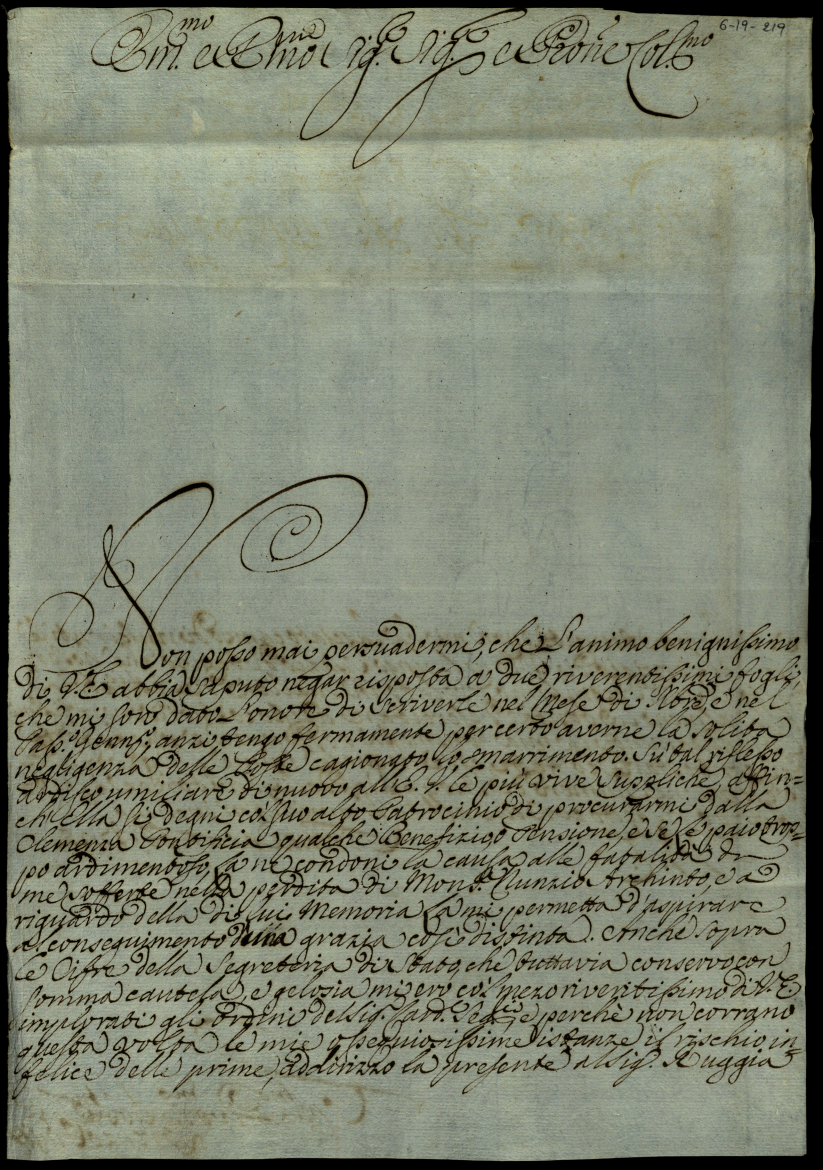 6-19-219
Em.mo e Rmo Sig.r Sig.r e Prone Col.mo
Non posso mai persuadermi, che L'animo benignissimo
di V.E. abbia saputo negar risposta a due riverentissimi fogli,
che mi sono dato L'onore di scriverle nel Mese di 9bre, e nel
pass.o Genn.o, anzi tengo fermamente per certo averne la solita
negligenza delle Poste cagionato lo smarrimento. Su tal riflesso
ardisco umiliare di nuovo all'E.V. le più vive suppliche, affin=
ch'ella si degni col suo alto Patrocinio di procurarmi dalla
Clemenza Pontificia qualche Benefizio, o Pensione, e se le paio trop=
po ardimentoso, La ne condoni la causa alle fatalità da
me sofferte nella perdita di Mons.r Nunzio Archinto, e a
riguardo della di Lui Memoria La mi permetta d'aspirare
al conseguimento d'una grazia così distinta. Anche sopra
le Cifre della Segreteria di Stato, che tuttavia conservo con
somma cautela, e gelosia mi ero col mezo riveritissimo di V.E.
implorati gli Ordini del Sig. Card. Seg.rio e perche non corrano
questa volta le mie ossequiosissime istanze il rischio in=
felice delle prime, addirizzo la presente al Sig. Ruggia